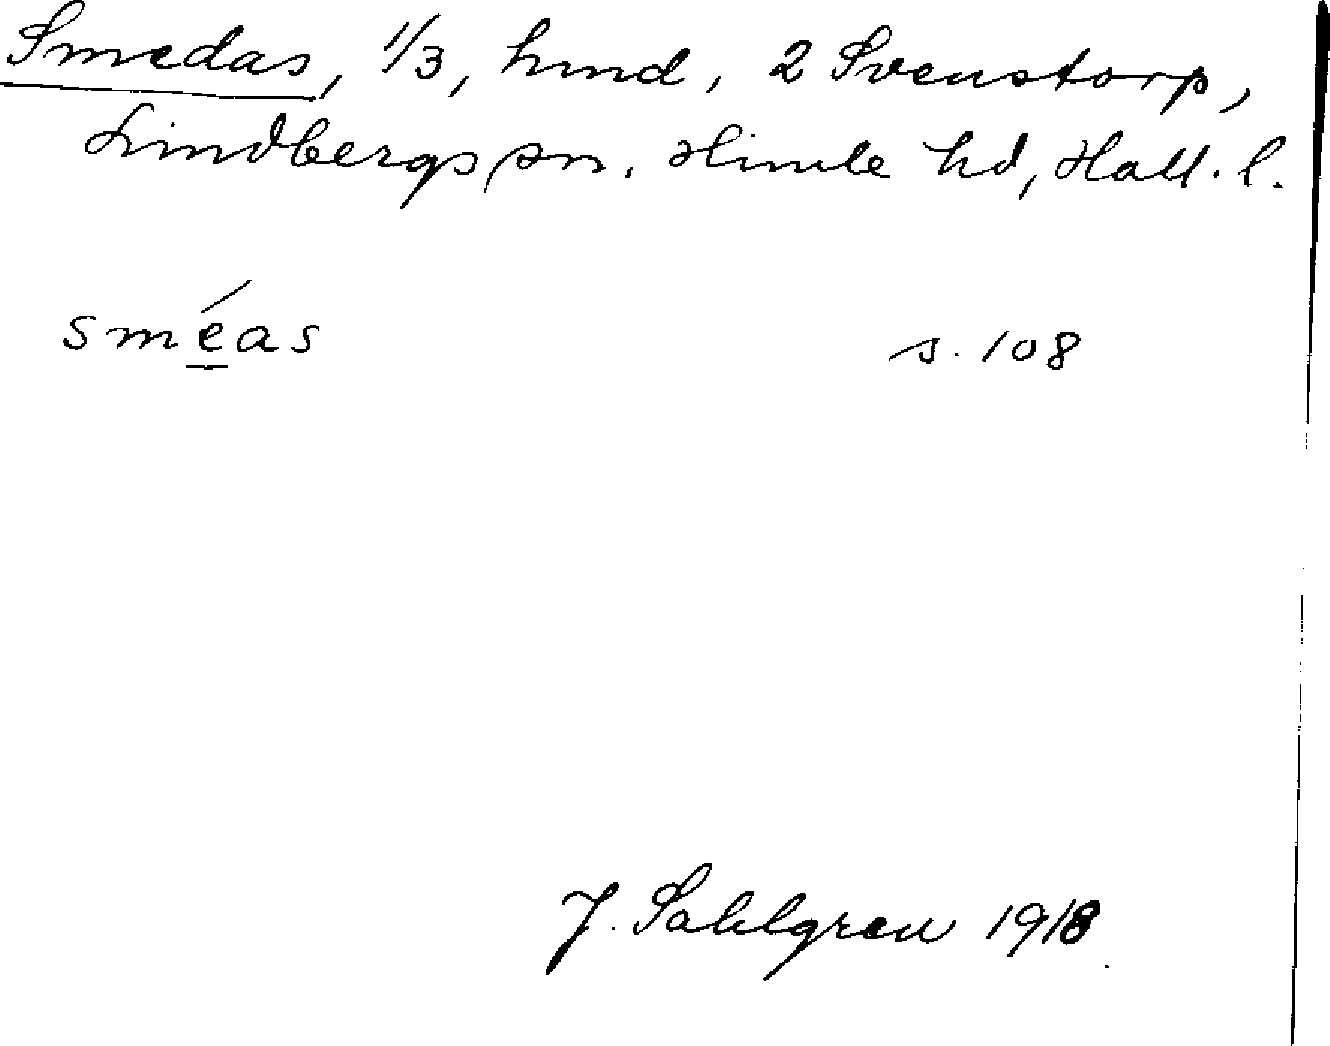 Smedas, 1/3, hmd, 2 Svenstorp,
Lindbergs sn. Himle hd, Hall. l.
sméas s. 108
J. Sahlgren 1918